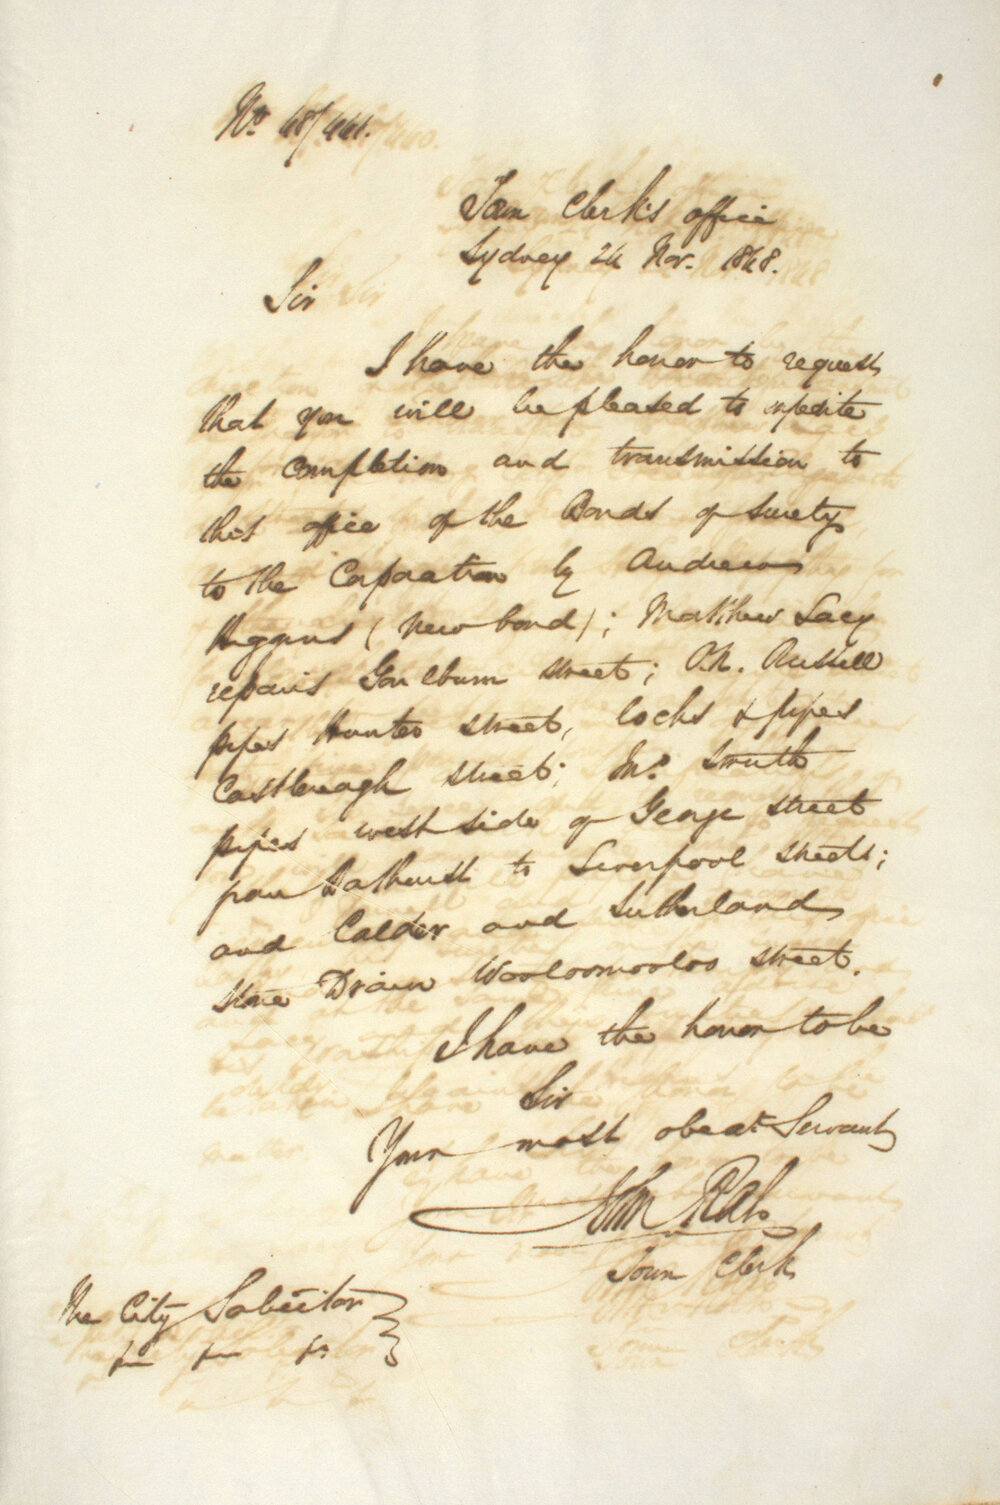 No. 48/441.
Town Clerk's office
Sydney 24 Nov. 1848.
Sir
I have the honor to request
that you will be pleased to expedite
the completion and transmission to
this office of the Bonds of Surety
to the Corporation by Andrew
Higgins (New bond); Matthew Lacy
repairs Goulburn street; Russell
pipes Hunter street, locks & pipes
Castlereagh street; Mr. Smith
pipes west side of George street
from Bathurst to Liverpool streets;
and Calder and Sutherland
stone Drain Wooloomooloo street.
I have the honor to be
Sir
Your most obedt. Servant
John Rae
Town Clerk
The City Solicitor